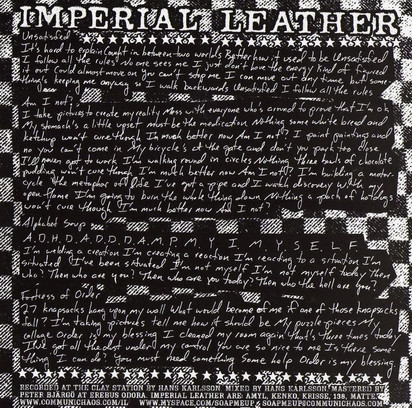 IMPERIAL LEATHER
Unsatisfied
It's hard to explain Caught in between two worlds Better how it used to be Unsatisfied
I follow all the rules No one sees me I just don't love the envy Kind of figured
it out Could almost move on You can't stop me I can move out any time but some
thing's keeping me anyway so I walk backwards Unsatisfied I follow all the rules
Am I not?
I take pictures to create my reality Mess with everyone who's around to prove that I'm ok
My stomach's a little upset must be the medication Nothing some white bread and
ketchup won't cure though I'm much better now Am I not? I paint paintings and
no you can't come in My bicycle's at the gate and don't you park too close
I'll never get to work I'm walking round in circles Nothing three bowls of chocolate
pudding won't cure though I'm much better now Am I not? I'm building a motor
cycle The metaphor of life I've got a pipe and I watch discovery With my
xenophone I'm going to burn the whole thing down Nothing a pack of hotdogs
won't cure though I'm much better now Am I not?
Alphabet Soup
A.D.H.D.A.D.D.D.A.M.P.M.Y I M.Y.S.E.L.F.
I'm building a creation I'm creating a reaction I'm reacting to a situation I'm
situated I've been situated I'm not myself I'm not myself today Then
who? Then who are you? Then who are you today? Then who the hell are you?
Fortress of Order
27 knapsacks hang upon my wall What would become of me if one of those knapsacks
fall? I'm taking pictures tell me how it should be My puzzle pieces My
collage Order is my blessing I cleaned my room again That's three times today
I have got all the dust under my control You are so nice to me Is there some
thing I can do? You must need something Some help Order is my blessing
RECORDED AT THE CLAY STATION BY HANS KARLSSON. MIXED BY HANS KARLSSON. MASTERED BY
PETER BJÄRGÖ AT EREBUS ODORA. IMPERIAL LEATHER ARE: AMYL, KENKO, KRISSE, 138, MATTE.
WWW.COMMUNICHAOS.COM/IL WWW.MYSPACE.COM/SOAPMEUP SOAPMEUP@COMMUNICHAOS.COM